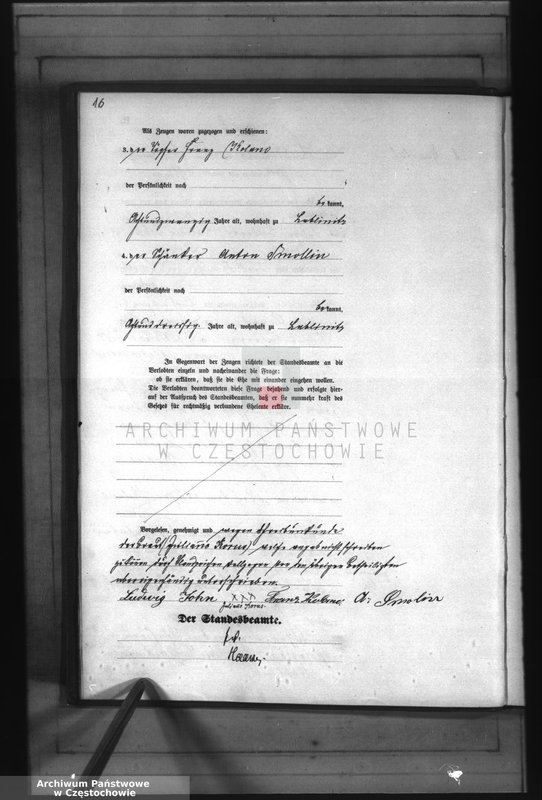 16
Als Zeugen waren zugezogen und erschienen:
3. der Franz Kolano
der Persönlichkeit nach
be kannt,
achtundzwanzig Jahre alt, wohnhaft zu Lublinitz
4. der Schänker Anton Smollin
der Persönlichkeit nach
be kannt,
achtunddreißig Jahre alt, wohnhaft zu Lublinitz
In Gegenwart der Zeugen richtete der Standesbeamte an die
Verlobten einzeln und nacheinander die Frage:
ob sie erklären, daß sie die Ehe mit einander eingehen wollen.
Die Verlobten beantworteten diese Frage bejahend und erfolgte hier-
auf der Ausspruch des Standesbeamten, daß er sie nunmehr kraft des
Gesetzes für rechtmäßig verbundene Eheleute erkläre.
ARCHIWUM PAŃSTWOWE
W CZĘSTOCHOWIE
Vorgelesen, genehmigt und wegen Schreibunkunde
der Braut welche angab nicht schreiben
zu können, durch Handzeichen vollzogen von den übrigen Betheiligten
eigenhändig unterschrieben.
Ludwig John XXX Franz Kolano A. Smolin
Der Standesbeamte.
Archiwum Państwowe
w Częstochowie